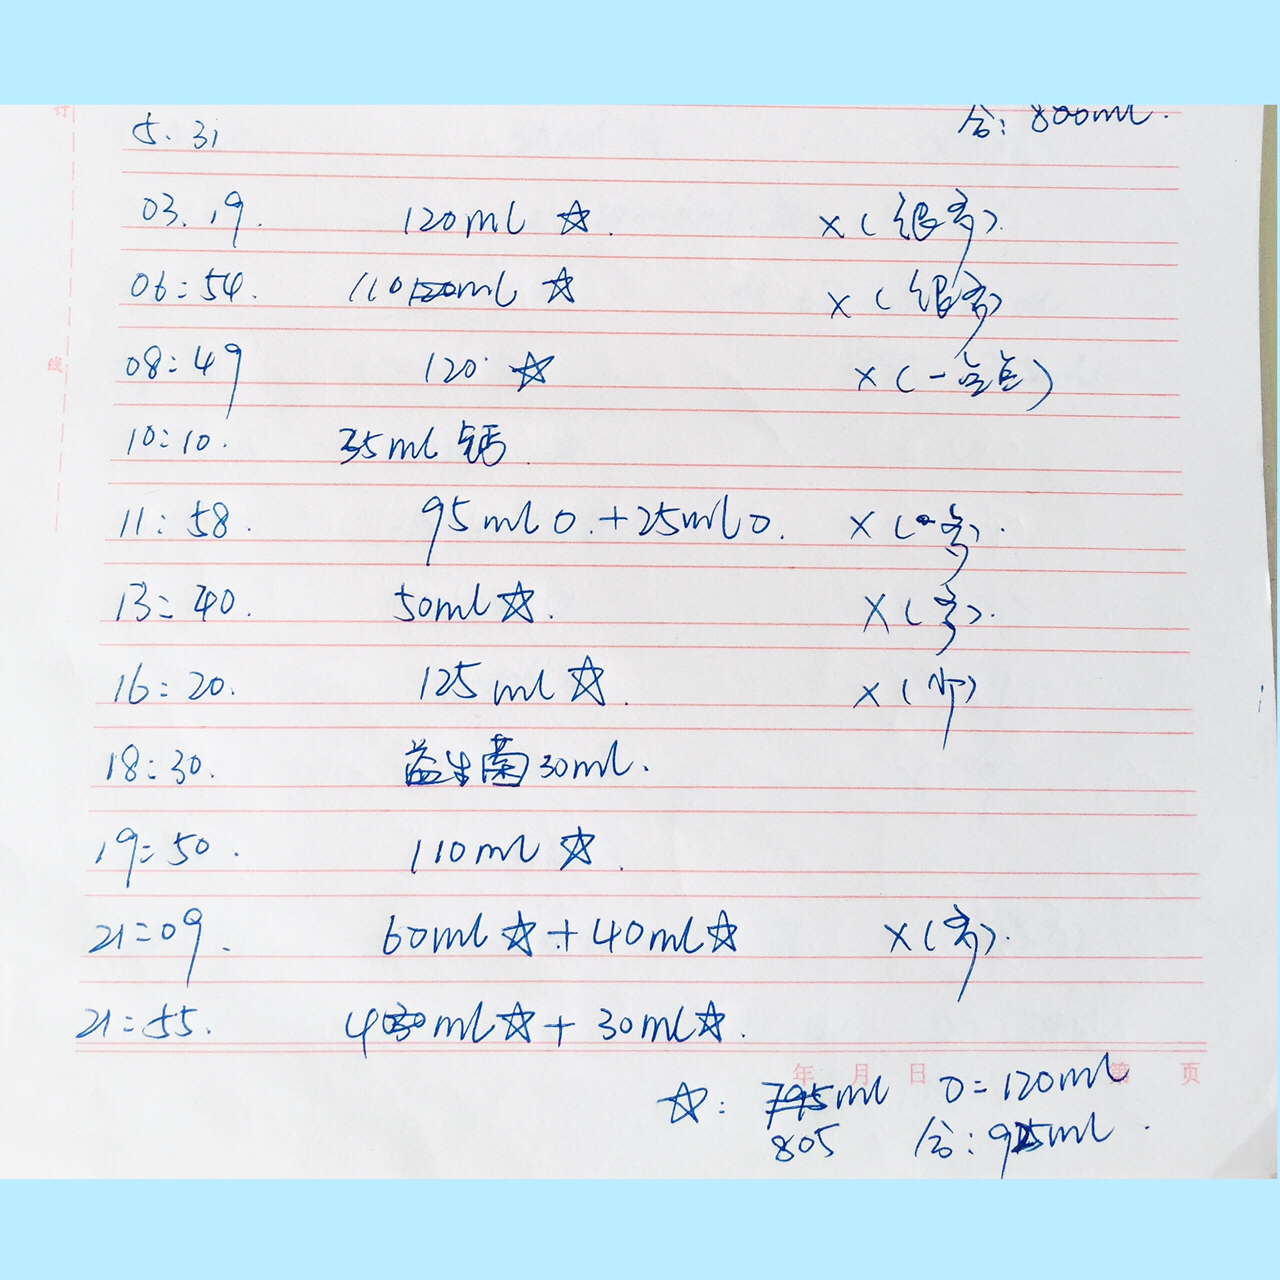 订
合: 800ml.
5. 31
03.19. 120ml ☆. ×(很多).
06:54. 110ml ☆ ×(很多)
线
08:49 120 ☆ ×(一点点)
10:10. 35ml 钙
11:58. 95ml O.+25ml O. ×(多).
13:40. 50ml ☆. ×(多).
16:20. 125ml ☆. ×(少)
18:30. 益生菌30ml.
19:50. 110ml ☆.
21:09. 60ml ☆+40ml ☆ ×(多).
21:55. 40ml ☆+ 30ml ☆.
年 月 日 第 页
☆: 795ml O=120ml
805 合: 925ml.